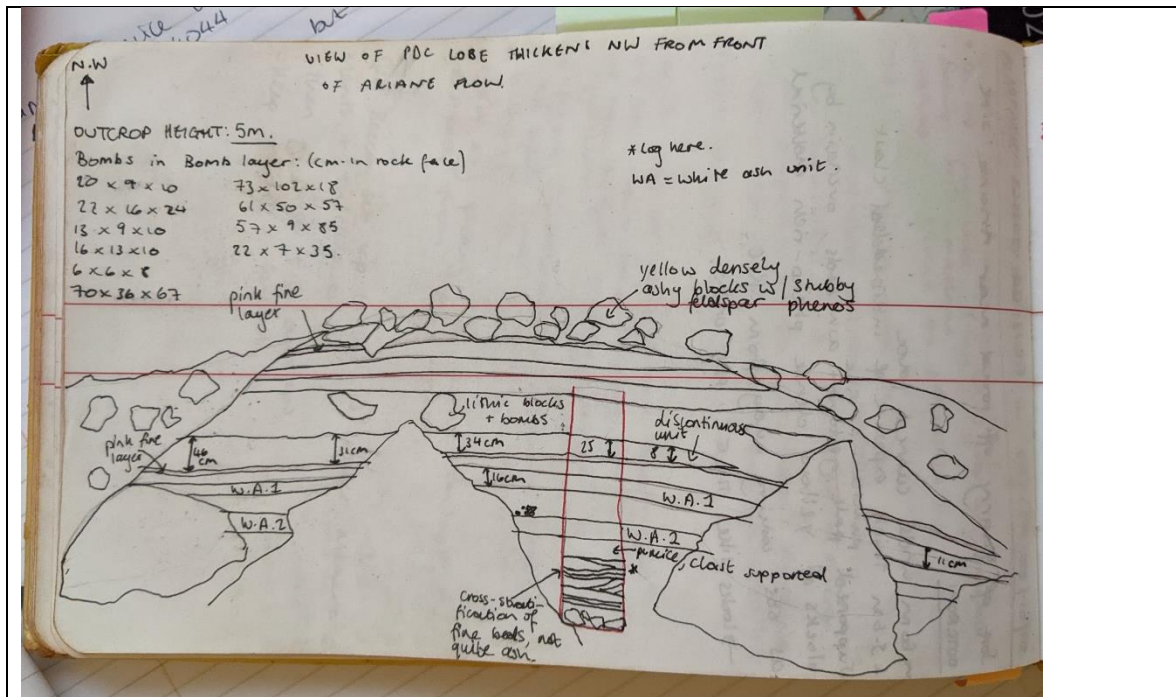 N.W
VIEW OF PDC LOBE THICKENS NW FROM FRONT
OF ARIANE FLOW.
OUTCROP HEIGHT: 5m.
Bombs in Bomb layer: (cm-in rock face)
20 x 9 x 10
22 x 16 x 24
13 x 9 x 10
16 x 13 x 10
6 x 6 x 8
70 x 36 x 67
73 x 102 x 18
61 x 50 x 57
57 x 9 x 85
22 x 7 x 35.
*Log here.
WA = white ash unit.
pink fine
layer
yellow densely
ashy blocks w/ stubby
feldspar phenos
lithic blocks
+ bombs
discontinuous
unit
pink fine
layer
46
cm
31cm
34cm
25
8
16cm
W.A.1
W.A.1
W.A.2
W.A.2
pumice, clast supported
*
11cm
cross-strati-
fication of
fine beds, not
quite ash.
but